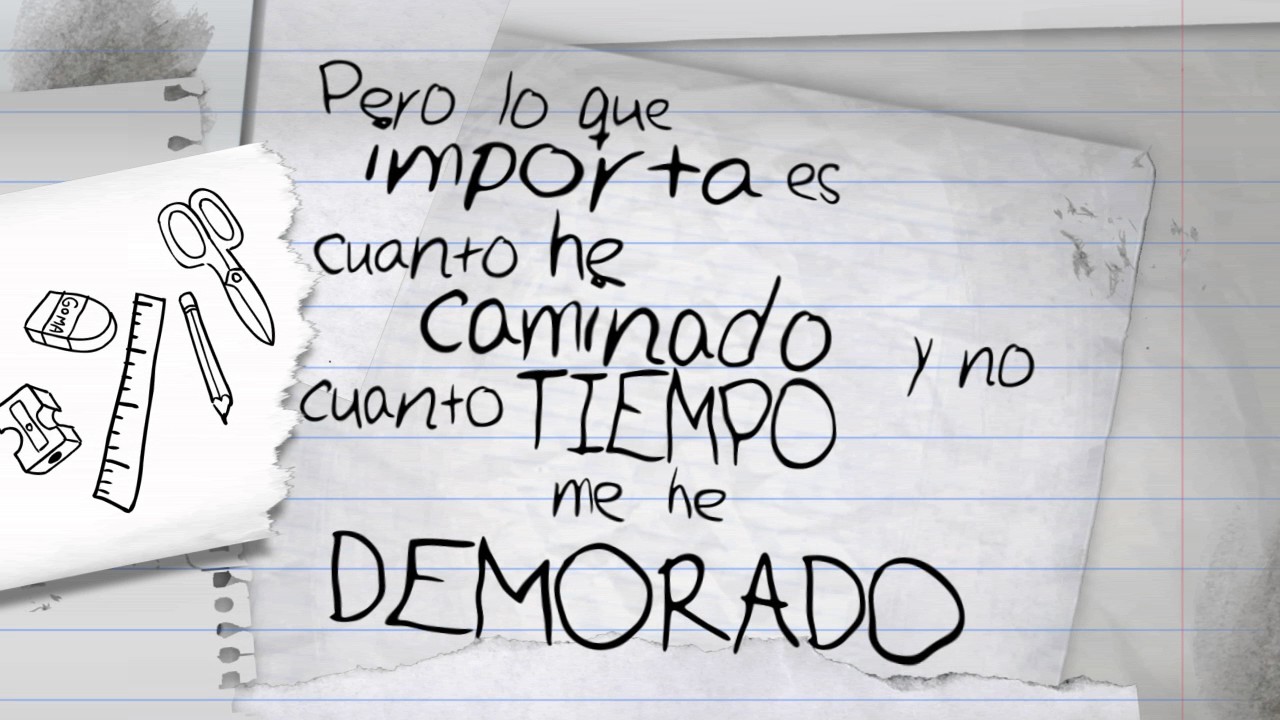 Pero lo que
importa es
cuanto he
caminado y no
cuanto TIEMPO
me he
DEMORADO
GOMA